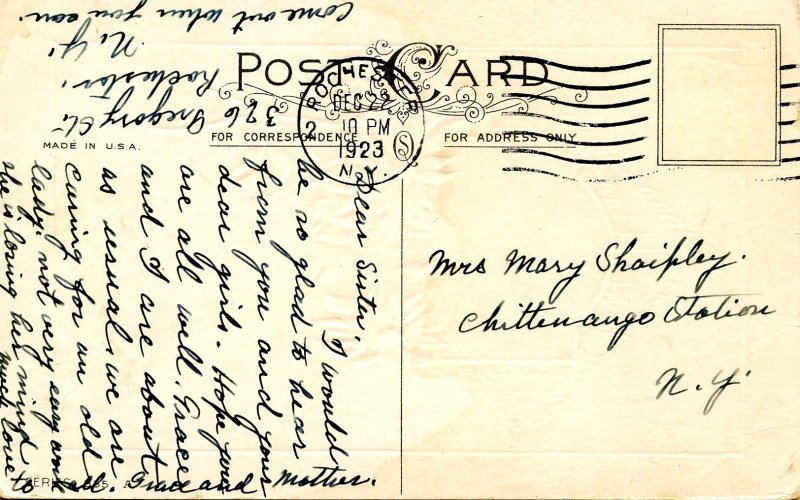 POST CARD
FOR CORRESPONDENCE
FOR ADDRESS ONLY
MADE IN U.S.A.
ROCHESTER
DEC 22
10 PM
1923
N.Y.
2
S
Mrs Mary Shaipley.
Chittenango Station
N.Y.
376 Gregory St.
Rochester,
N.Y.
Come out when you can.
Dear Sister. I would
be so glad to hear
from you and your
dear girls. Hope you
are all well. Grace
and I are about
as usual. we are
caring for an old
lady. not very easy work
she is losing her mind
much love
to all. Grace and Mother.
SERIES